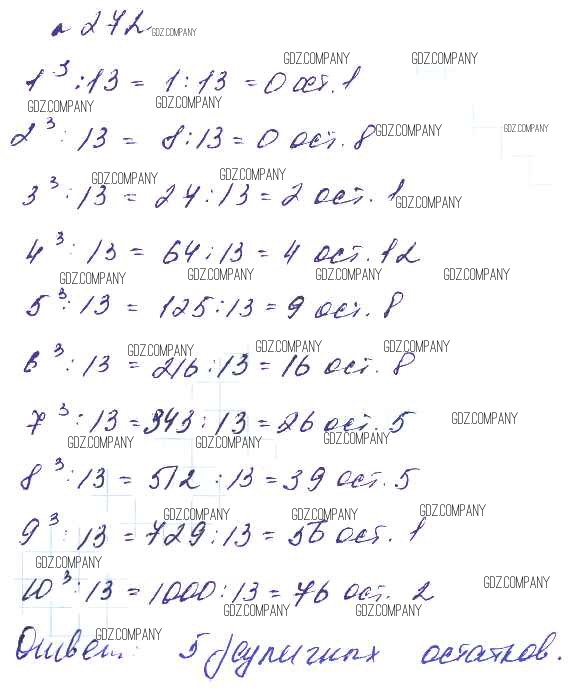 № 272. GDZ.COMPANY
GDZ.COMPANY GDZ.COMPANY
1³ : 13 = 1 : 13 = 0 ост. 1
GDZ.COMPANY GDZ.COMPANY
2³ : 13 = 8 : 13 = 0 ост. 8 GDZ.COMPANY GDZ.COMPANY
GDZ.COMPANY GDZ.COMPANY
3³ : 13 = 27 : 13 = 2 ост. 1 GDZ.COMPANY
4³ : 13 = 64 : 13 = 4 ост. 12
GDZ.COMPANY GDZ.COMPANY GDZ.COMPANY GDZ.COMPANY
5³ : 13 = 125 : 13 = 9 ост. 8
GDZ.COMPANY GDZ.COMPANY GDZ.COMPANY
6³ : 13 = 216 : 13 = 16 ост. 8
7³ : 13 = 343 : 13 = 26 ост. 5 GDZ.COMPANY
GDZ.COMPANY GDZ.COMPANY GDZ.COMPANY
8³ : 13 = 512 : 13 = 39 ост. 5
GDZ.COMPANY GDZ.COMPANY GDZ.COMPANY
9³ : 13 = 729 : 13 = 56 ост. 1
GDZ.COMPANY
10³ : 13 = 1000 : 13 = 76 ост. 2 GDZ.COMPANY
GDZ.COMPANY GDZ.COMPANY
GDZ.COMPANY
Ответ: 5 остатков.